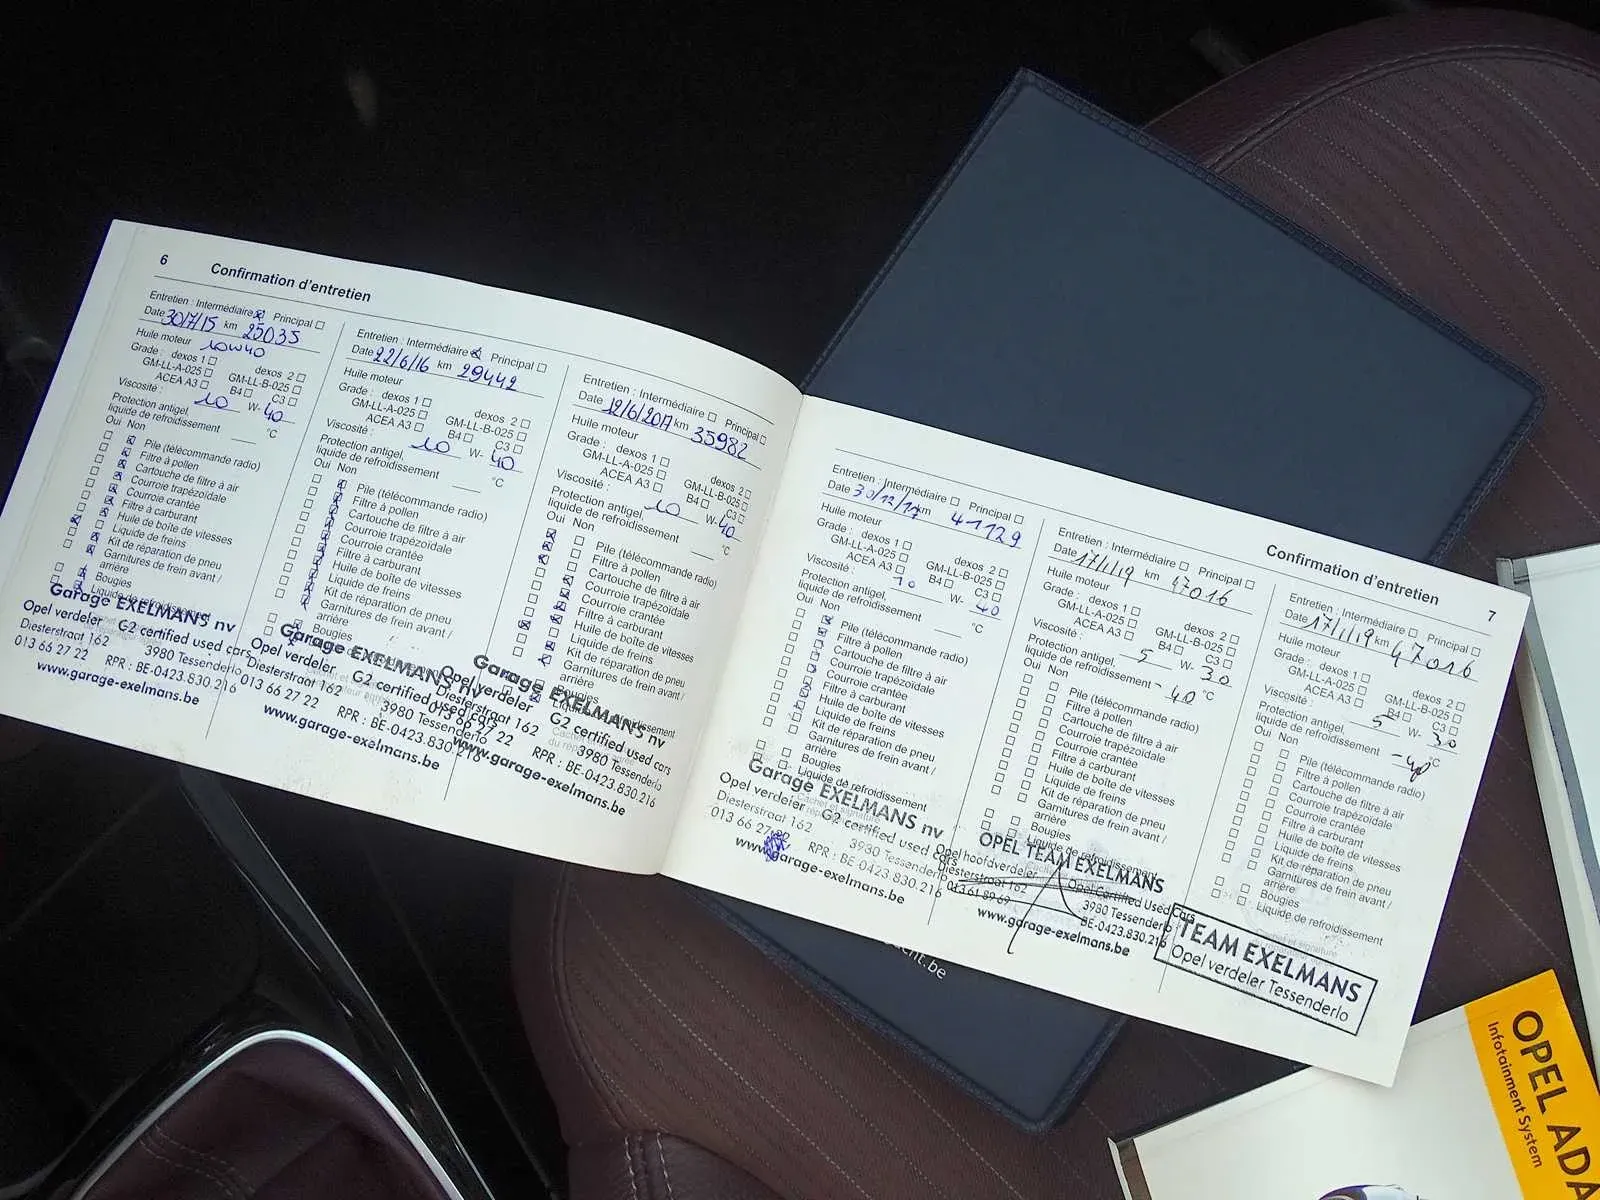 6 Confirmation d'entretien
Entretien : Intermédiaire Principal
Date 30/7/15 km 25035
Huile moteur 10W40
Grade : dexos 1 dexos 2
GM-LL-A-025 GM-LL-B-025
ACEA A3 B4 C3
Viscosité : 10 W- 40
Protection antigel,
liquide de refroidissement °C
Oui Non
Pile (télécommande radio)
Filtre à pollen
Cartouche de filtre à air
Courroie trapézoïdale
Courroie crantée
Filtre à carburant
Huile de boîte de vitesses
Liquide de freins
Kit de réparation de pneu
Garnitures de frein avant /
arrière
Bougies
Liquide de refroidissement
Garage EXELMANS nv
Opel verdeler G2 certified used cars
Diesterstraat 162 3980 Tessenderlo
013 66 27 22 RPR : BE-0423.830.216
www.garage-exelmans.be
Entretien : Intermédiaire Principal
Date 22/6/16 km 29442
Huile moteur
Grade : dexos 1 dexos 2
GM-LL-A-025 GM-LL-B-025
ACEA A3 B4 C3
Viscosité : 10 W- 40
Protection antigel,
liquide de refroidissement °C
Oui Non
Pile (télécommande radio)
Filtre à pollen
Cartouche de filtre à air
Courroie trapézoïdale
Courroie crantée
Filtre à carburant
Huile de boîte de vitesses
Liquide de freins
Kit de réparation de pneu
Garnitures de frein avant /
arrière
Bougies
Garage EXELMANS nv
Opel verdeler G2 certified used cars
Diesterstraat 162 3980 Tessenderlo
013 66 27 22 RPR : BE-0423.830.216
www.garage-exelmans.be
Entretien : Intermédiaire Principal
Date 12/6/2017 km 35982
Huile moteur
Grade : dexos 1 dexos 2
GM-LL-A-025 GM-LL-B-025
ACEA A3 B4 C3
Viscosité : 10 W- 40
Protection antigel,
liquide de refroidissement °C
Oui Non
Pile (télécommande radio)
Filtre à pollen
Cartouche de filtre à air
Courroie trapézoïdale
Courroie crantée
Filtre à carburant
Huile de boîte de vitesses
Liquide de freins
Kit de réparation de pneu
Garnitures de frein avant /
arrière
Bougies
Garage EXELMANS nv
Opel verdeler G2 certified used cars
Diesterstraat 162 3980 Tessenderlo
013 66 27 22 RPR : BE-0423.830.216
www.garage-exelmans.be
Confirmation d'entretien 7
Entretien : Intermédiaire Principal
Date 30/12/17 km 41129
Huile moteur
Grade : dexos 1 dexos 2
GM-LL-A-025 GM-LL-B-025
ACEA A3 B4 C3
Viscosité : 10 W- 40
Protection antigel,
liquide de refroidissement °C
Oui Non
Pile (télécommande radio)
Filtre à pollen
Cartouche de filtre à air
Courroie trapézoïdale
Courroie crantée
Filtre à carburant
Huile de boîte de vitesses
Liquide de freins
Kit de réparation de pneu
Garnitures de frein avant /
arrière
Bougies
Liquide de refroidissement
Garage EXELMANS nv
Opel verdeler G2 certified used cars
Diesterstraat 162 3980 Tessenderlo
013 66 27 RPR : BE-0423.830.216
www.garage-exelmans.be
Entretien : Intermédiaire Principal
Date 17/1/19 km 47016
Huile moteur
Grade : dexos 1 dexos 2
GM-LL-A-025 GM-LL-B-025
ACEA A3 B4 C3
Viscosité : 5 W- 30
Protection antigel,
liquide de refroidissement - 40 °C
Oui Non
Pile (télécommande radio)
Filtre à pollen
Cartouche de filtre à air
Courroie trapézoïdale
Courroie crantée
Filtre à carburant
Huile de boîte de vitesses
Liquide de freins
Kit de réparation de pneu
Garnitures de frein avant /
arrière
Bougies
Liquide de refroidissement
OPEL TEAM EXELMANS
Opel hoofdverdeler Opel Certified Used Cars
Diesterstraat 162 3980 Tessenderlo
013 61 89 69 BE-0423.830.216
www.garage-exelmans.be
Entretien : Intermédiaire Principal
Date 17/1/19 km 47016
Huile moteur
Grade : dexos 1 dexos 2
GM-LL-A-025 GM-LL-B-025
ACEA A3 B4 C3
Viscosité : 5 W- 30
Protection antigel,
liquide de refroidissement - 40 °C
Oui Non
Pile (télécommande radio)
Filtre à pollen
Cartouche de filtre à air
Courroie trapézoïdale
Courroie crantée
Filtre à carburant
Huile de boîte de vitesses
Liquide de freins
Kit de réparation de pneu
Garnitures de frein avant /
arrière
Bougies
Liquide de refroidissement
Cachet et signature
TEAM EXELMANS
Opel verdeler Tessenderlo
OPEL ADA
Infotainment System